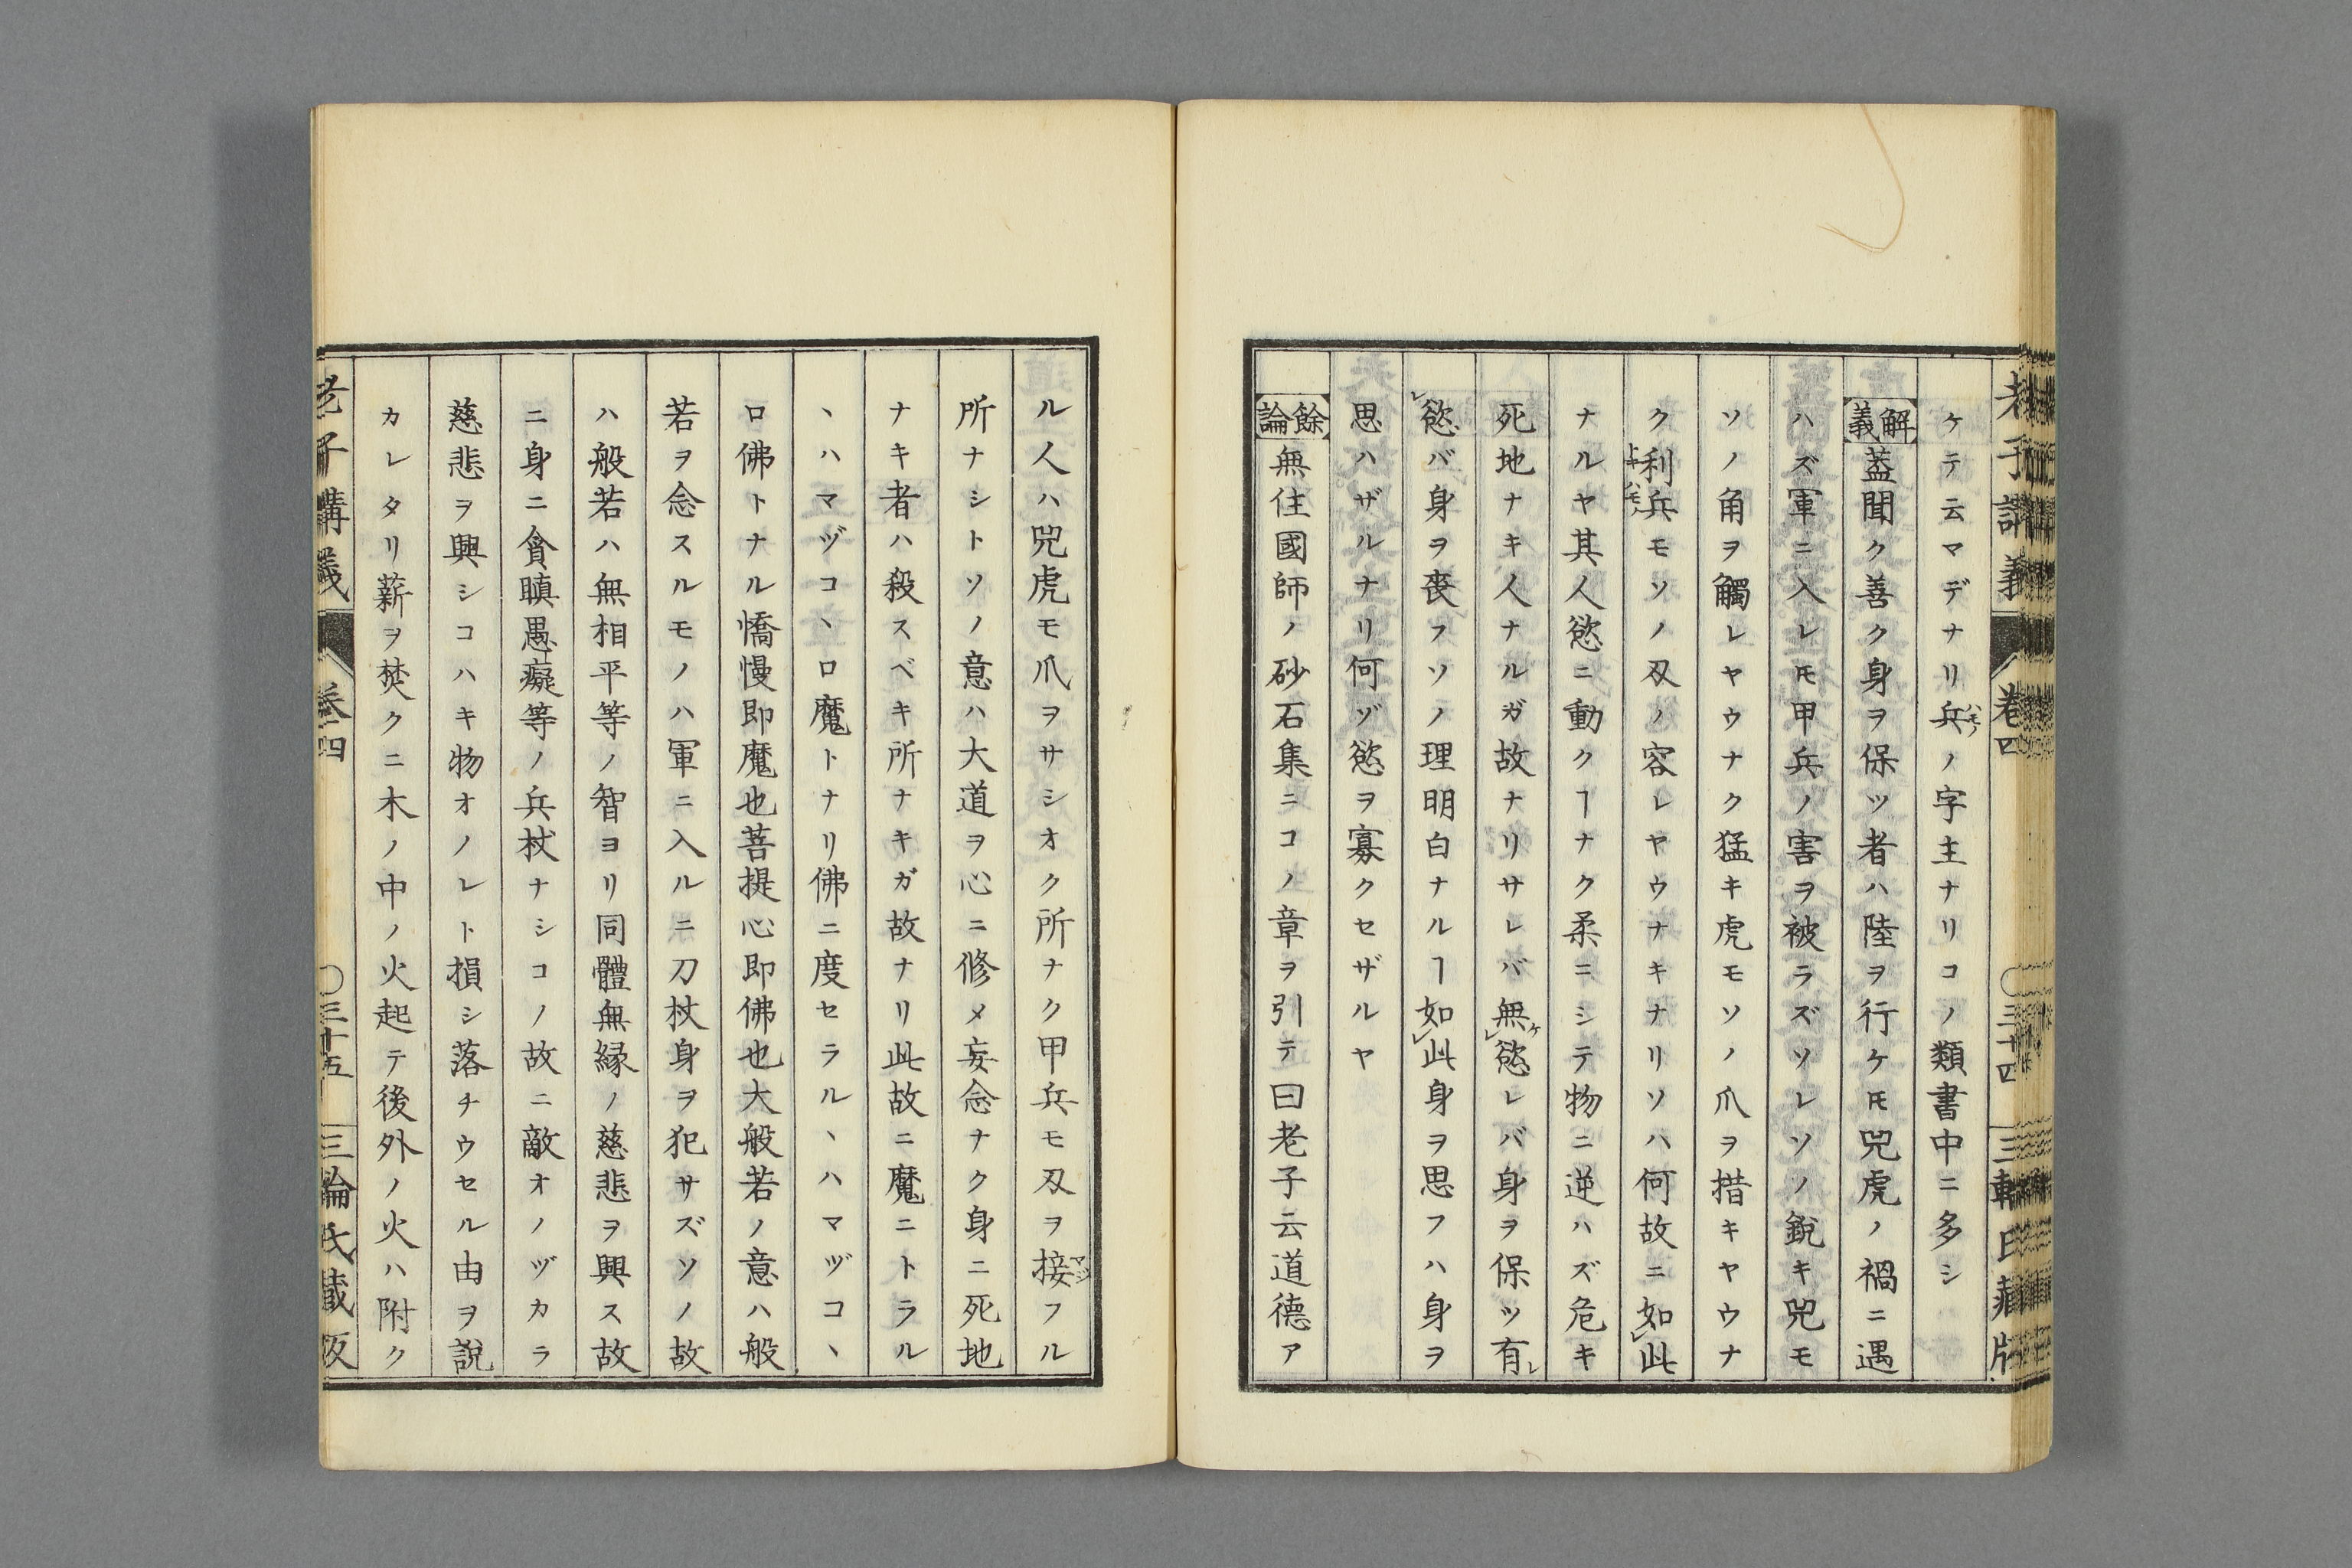 老子講義 卷四 〇三十四 三輪氏藏版
ケテ云マデナリ兵ハモノノ字主ナリコノ類書中ニ多シ
解義 蓋聞ク善ク身ヲ保ツ者ハ陸ヲ行ケ𪜈兕虎ノ禍ニ遇
ハズ軍ニ入レ𪜈甲兵ノ害ヲ被ラズソレソノ銳キ兕モ
ソノ角ヲ觸レヤウナク猛キ虎モソノ爪ヲ措キヤウナ
ク利トキ兵ハモノモソノ刄ノ容レヤウナキナリソハ何故ニ如レ此
ナルヤ其人慾ニ動クヿナク柔ニシテ物ニ逆ハズ危キ
死地ナキ人ナルガ故ナリサレバ無ケレ慾レバ身ヲ保ツ有レ
慾バ身ヲ喪フソノ理明白ナルヿ如レ此身ヲ思フハ身ヲ
思ハザルナリ何ヅ慾ヲ寡クセザルヤ
餘論 無住國師ノ砂石集ニコノ章ヲ引テ曰老子云道德ア
ル人ハ兕虎モ爪ヲサシオク所ナク甲兵モ刄ヲ接マジフル
所ナシトソノ意ハ大道ヲ心ニ修メ妄念ナク身ニ死地
ナキ者ハ殺スベキ所ナキガ故ナリ此故ニ魔ニトラル
ヽハマヅコヽロ魔トナリ佛ニ度セラルヽハマヅコヽ
ロ佛トナル憍慢即魔也菩提心即佛也大般若ノ意ハ般
若ヲ念スルモノハ軍ニ入ルニ刀杖身ヲ犯サズソノ故
ハ般若ハ無相平等ノ智ヨリ同體無縁ノ慈悲ヲ興ス故
ニ身ニ貪瞋愚癡等ノ兵杖ナシコノ故ニ敵オノヅカラ
慈悲ヲ興シコハキ物オノレト損シ落チウセル由ヲ說
カレタリ薪ヲ焚クニ木ノ中ノ火起テ後外ノ火ハ附ク
老子講義 卷四 〇三十五 三輪氏藏版